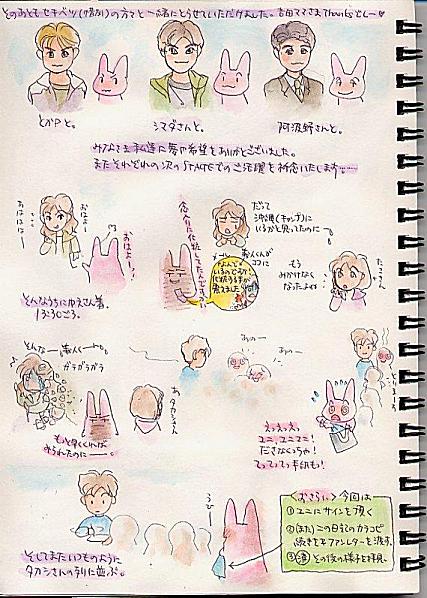 そのあともセキベツ(惜別)の方々と一緒にとらせていただけました。吉田ママさまThanksでしー♥
とかPと。
シマダさんと。
阿波野さんと。
みなさま私達に夢や希望をありがとうございました。
またそれぞれの次のSTAGEでのご活躍を祈念いたします
おはよー
あはははー
おはよーっ!
念入りに化粧してたんですっ
だって
沖縄(キャンプ)に
いるかと思ってたのに
新人くんが
ココに
もう
みかけなく
なったよね
たこさん
そんなうちにゆえさん着。
13:30ごろ。
そんなー新人くーん
ガラガラガラ
もっと早くくれば
みられたのにー。
あ
タカシさん
あのー
あのー
とりまーす
えっえっえっ
ユニ、ユニマニ!
ださなくっちゃ!
てってってっ手紙も!
そしてまたいつものように
タカシさんの列に並ぶ。
うひー
<おさらい> 今回は
①ユニにサインを頂く
②(また)この日までのカラコピ
続きをファンレターを渡す
③(遠)その後の様子を拝見。